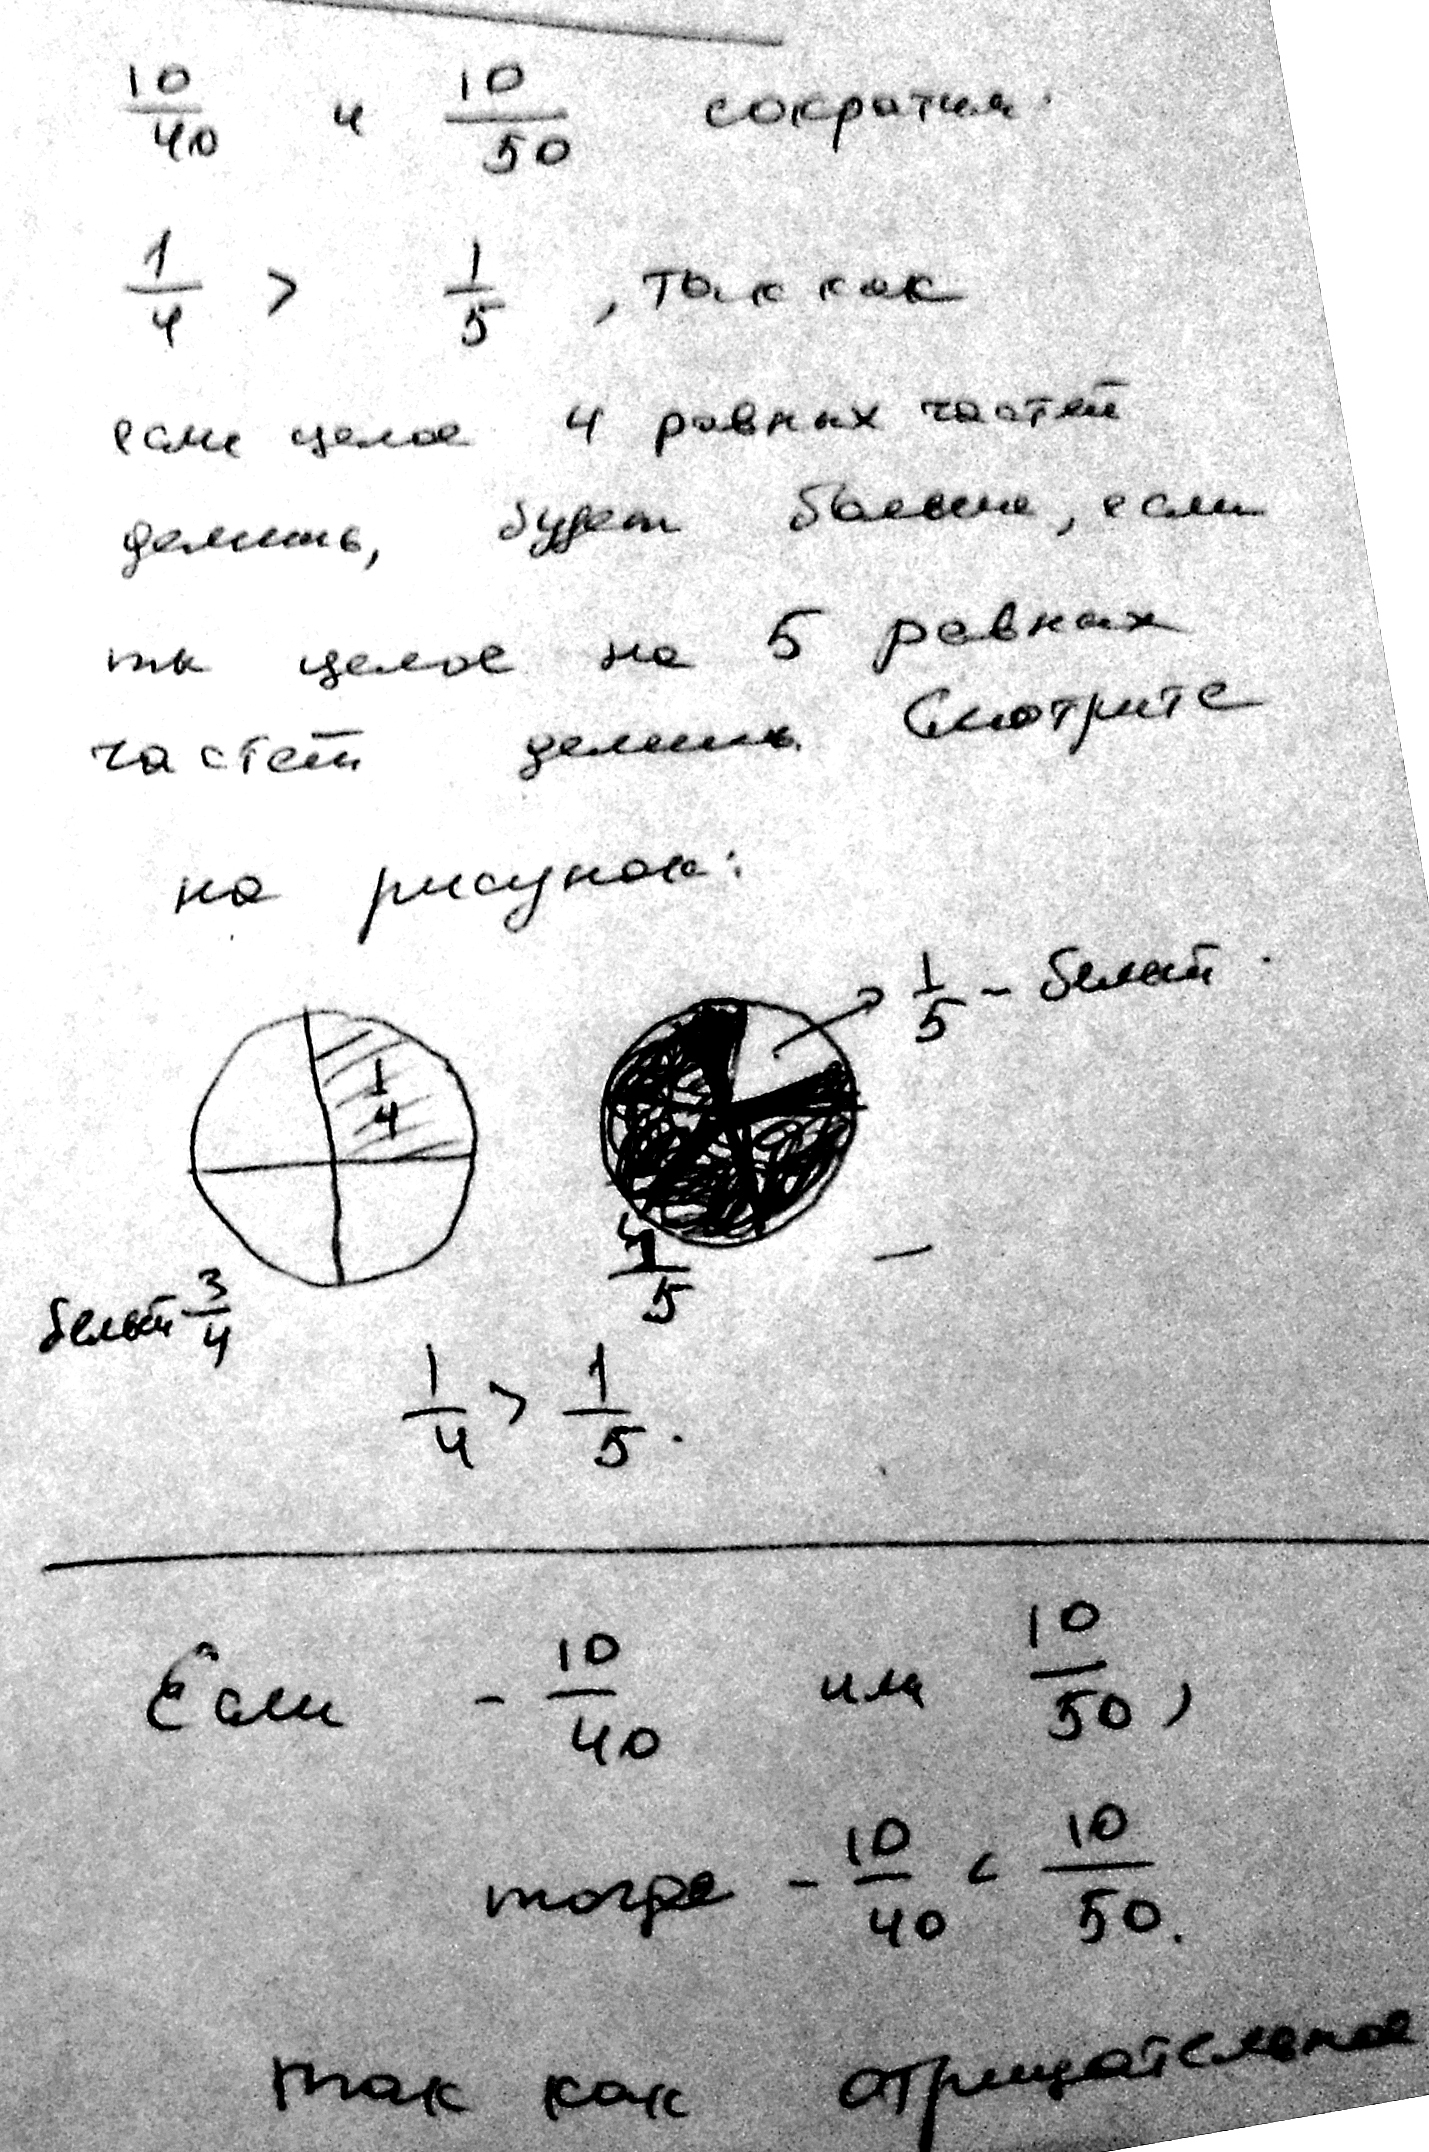 10/40 и 10/50 сократим.
1/4 > 1/5, так как
если целое 4 равных частей
делить, будет больше, если
ты целое на 5 равных
частей делишь. Смотрите
на рисунок:
1/5 - белый.
1/4
4/5
белый 3/4
1/4 > 1/5.
Если - 10/40 или 10/50,
тогда - 10/40 < 10/50.
так как отрицательное